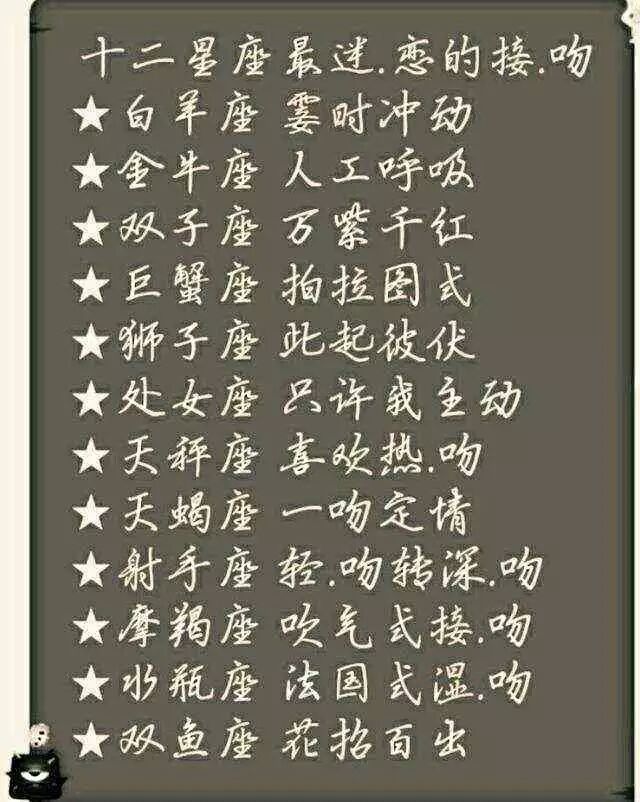 十二星座最迷.恋的接.吻
★白羊座 霎时冲动
★金牛座 人工呼吸
★双子座 万紫千红
★巨蟹座 拍拉图式
★狮子座 此起彼伏
★处女座 只许我主动
★天秤座 喜欢热.吻
★天蝎座 一吻定情
★射手座 轻.吻转深.吻
★摩羯座 吹气式接.吻
★水瓶座 法国式湿.吻
★双鱼座 花招百出